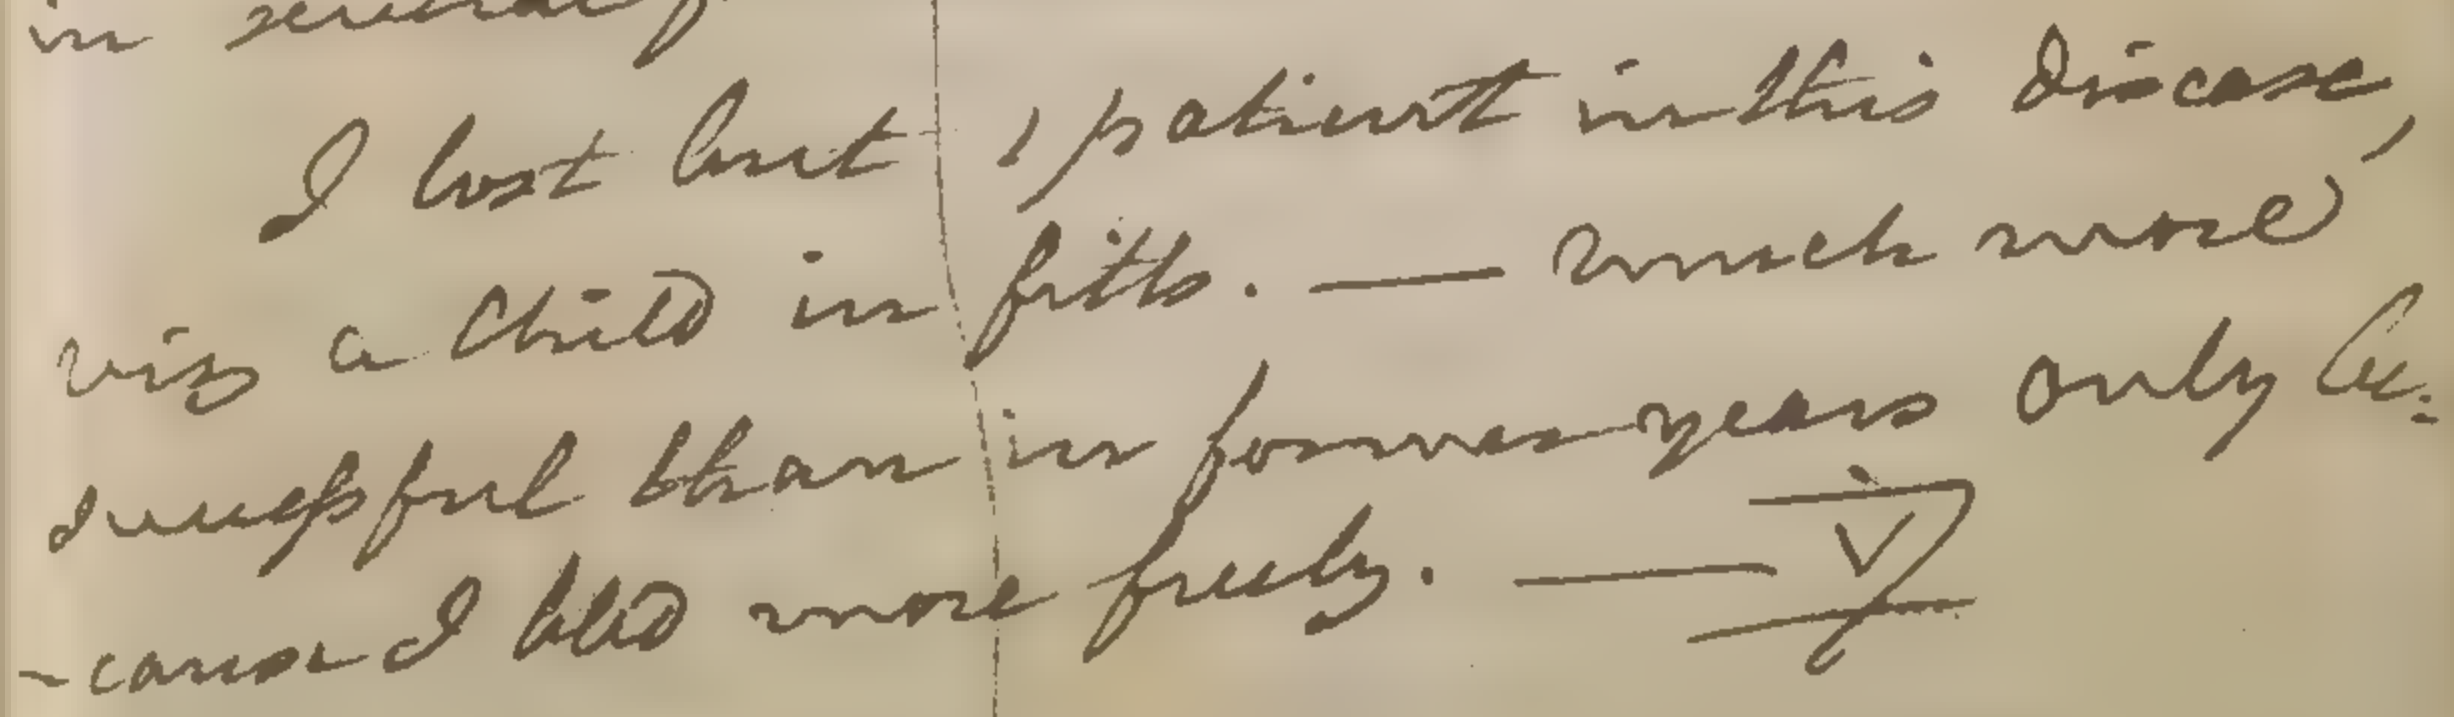 in several
I lost but 1 patient in this disease,
viz a child in fitts. — much more
successful than in former years only be:
-cause I bled more freely. —